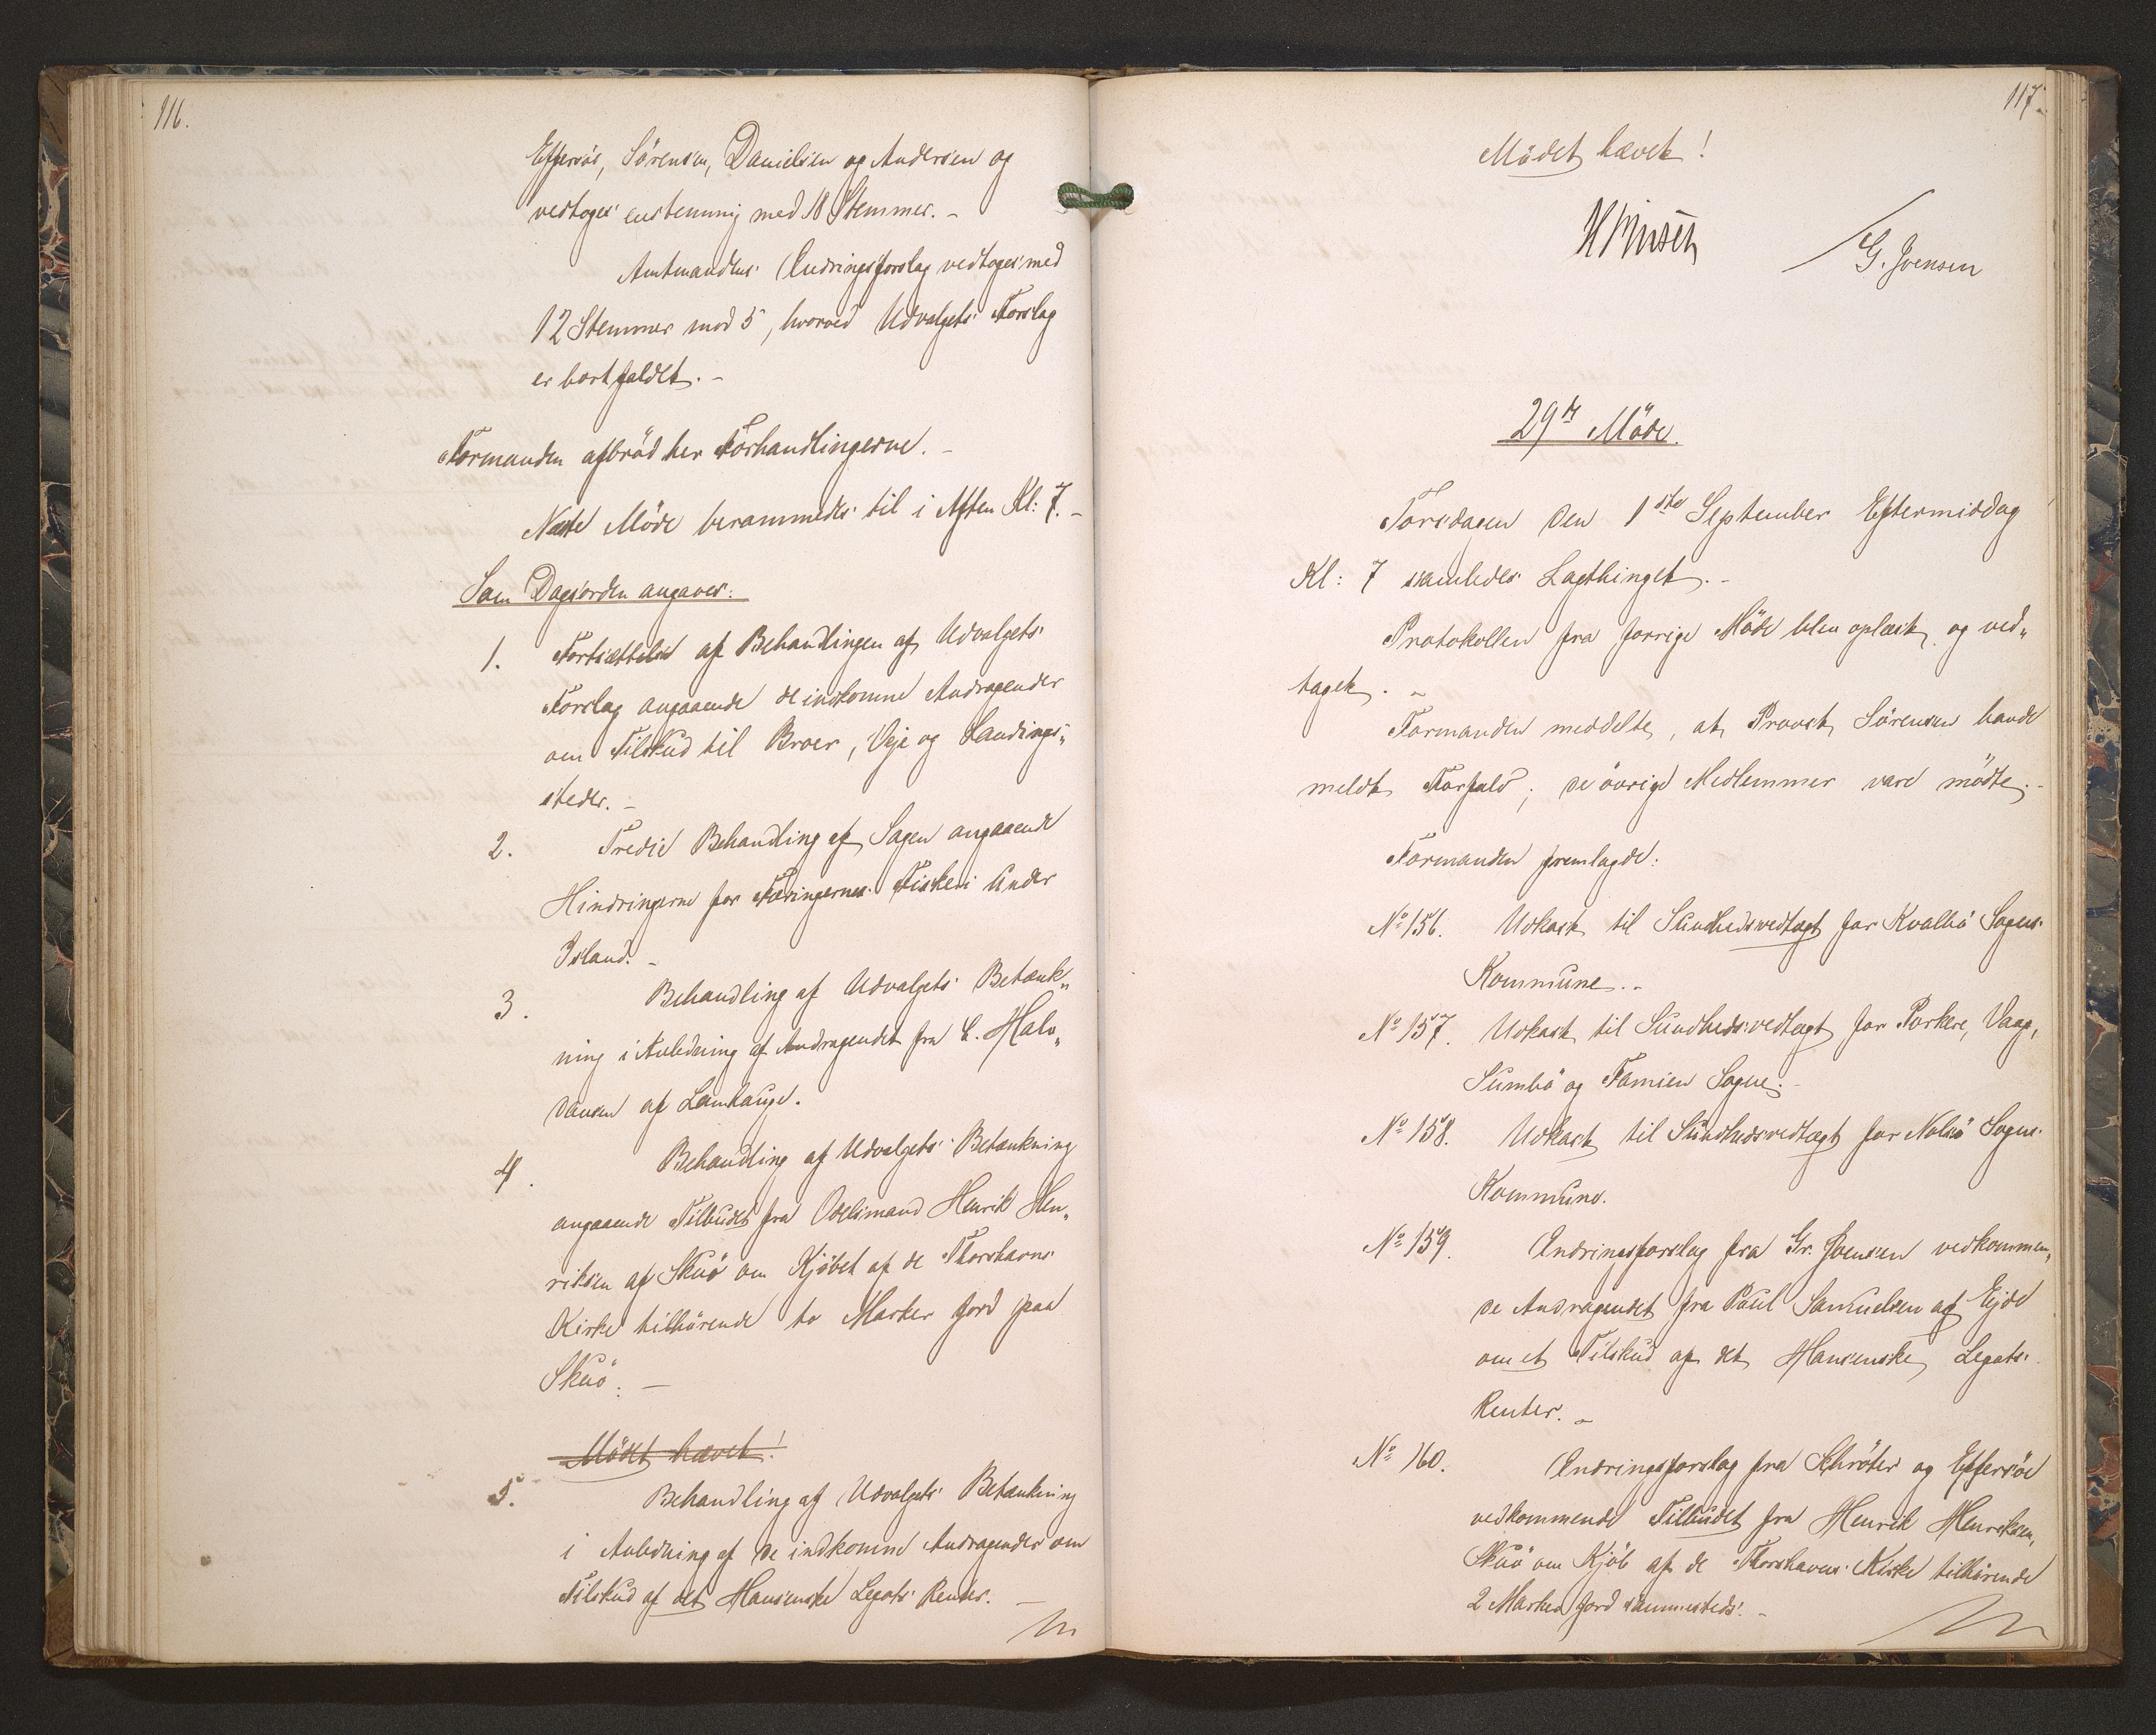 116.
Effersöe, Sörensen, Danielsen og Andersen og
vedtoges enstemmig med 18 Stemmer. -
Amtmandens Ændringsforslag vedtoges med
12 Stemmer mod 5, hvorved Udvalgets Forslag
er bortfaldet. -
Formanden afbröd her Forhandlingerne. -
Næste Möde berammedes til i Aften Kl: 7. -
Som Dagsorden angaves:
1. Fortsættelse af Behandlingen af Udvalgets
Forslag angaaende de indkomne Andragender
om Tilskud til Broer, Veje og Landings„
steder. -
2. Tredie Behandling af Sagen angaaende
Hindringerne for Færingernes Fiskeri under
Island. -
3. Behandling af Udvalgets Betænk„
ning i Anledning af Andragendet fra C. Halv„
dansen af Lamhauge.
4. Behandling af Udvalgets Betænkning
angaaende Tilbudet fra Odelsmand Henrik Hen„
riksen af Skuö om Kjöbet af de Thorshavns
Kirke tilhörende to Marker Jord paa
Skuö. -
Mödet hævet!
5. Behandling af Udvalgets Betænkning
i Anledning af de indkomne Andragender om
Tilskud af det Hansenske Legats Renter. -
117.
Mödet hævet!
G. Joensen
29de Möde.
Torsdagen den 1ste September Eftermiddag
Kl: 7 samledes Lagthinget. -
Protokollen fra forrige Möde blev oplæst og ved„
taget. -
Formanden meddelte, at Provst Sörensen havde
meldt Forfald; de övrige Medlemmer vare mödte. -
Formanden fremlagde:
No 156. Udkast til Sundhedsvedtægt for Kvalbö Sogns
Kommune. -
No 157. Udkast til Sundhedsvedtægt for Porkere, Vaag,
Sumbö og Famien Sogne. -
No 158. Udkast til Sundhedsvedtægt for Nolsö Sogns
Kommune.
No 159. Ændringsforslag fra Gr. Joensen vedkommen„
de Andragendet fra Poul Samuelsen af Ejde
om et Tilskud af det Hansenske Legats
Renter. -
No 160. Ændringsforslag fra Schröter og Effersöe
vedkommende Tilbudet fra Henrik Henriksen,
Skuö om Kjöb af de Thorshavns Kirke tilhörende
2 Marker Jord sammesteds. -